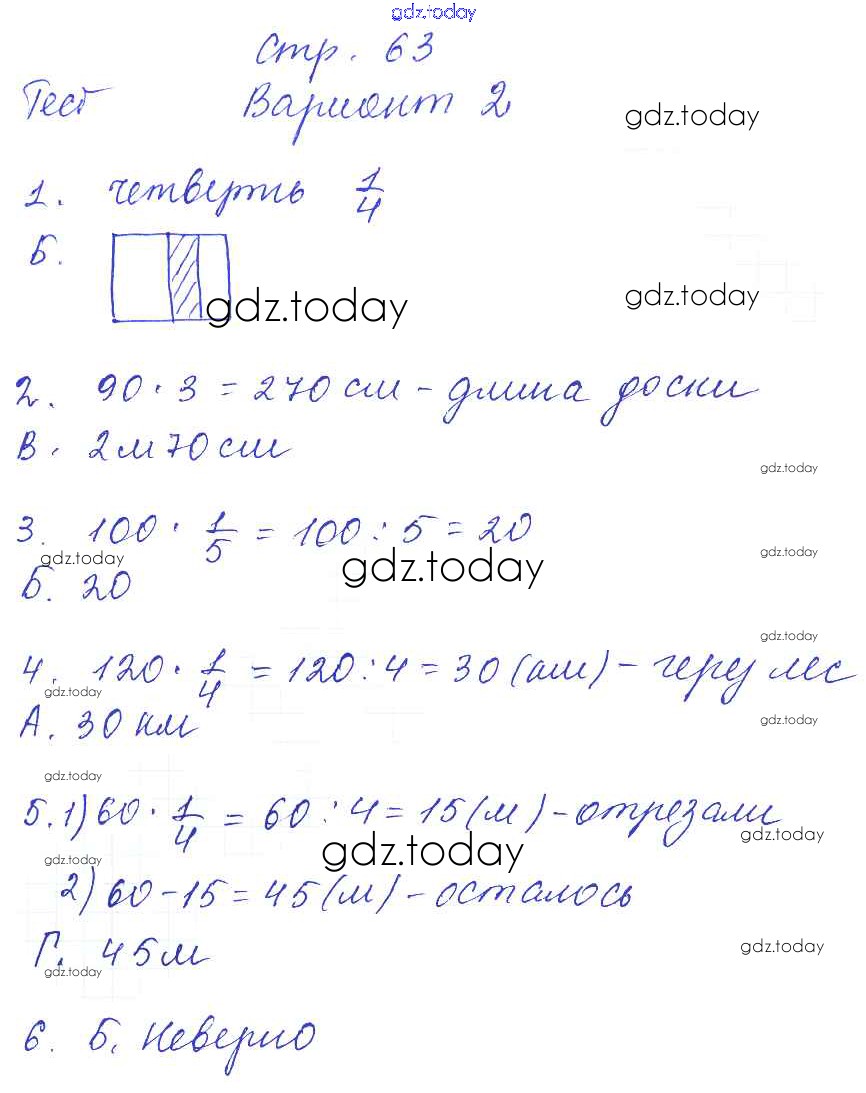 gdz.today
Стр. 63
Тест Вариант 2
gdz.today
1. четверть 1/4
Б.
gdz.today gdz.today
2. 90 · 3 = 270 см - длина доски
В. 2 м 70 см
gdz.today
3. 100 · 1/5 = 100 : 5 = 20
gdz.today gdz.today gdz.today
Б. 20
gdz.today
4. 120 · 1/4 = 120 : 4 = 30 (км) - через лес
gdz.today
А. 30 км gdz.today
gdz.today
5. 1) 60 · 1/4 = 60 : 4 = 15 (м) - отрезали
gdz.today
gdz.today gdz.today
2) 60 - 15 = 45 (м) - осталось
Г. 45 м gdz.today
gdz.today
6. Б. Неверно